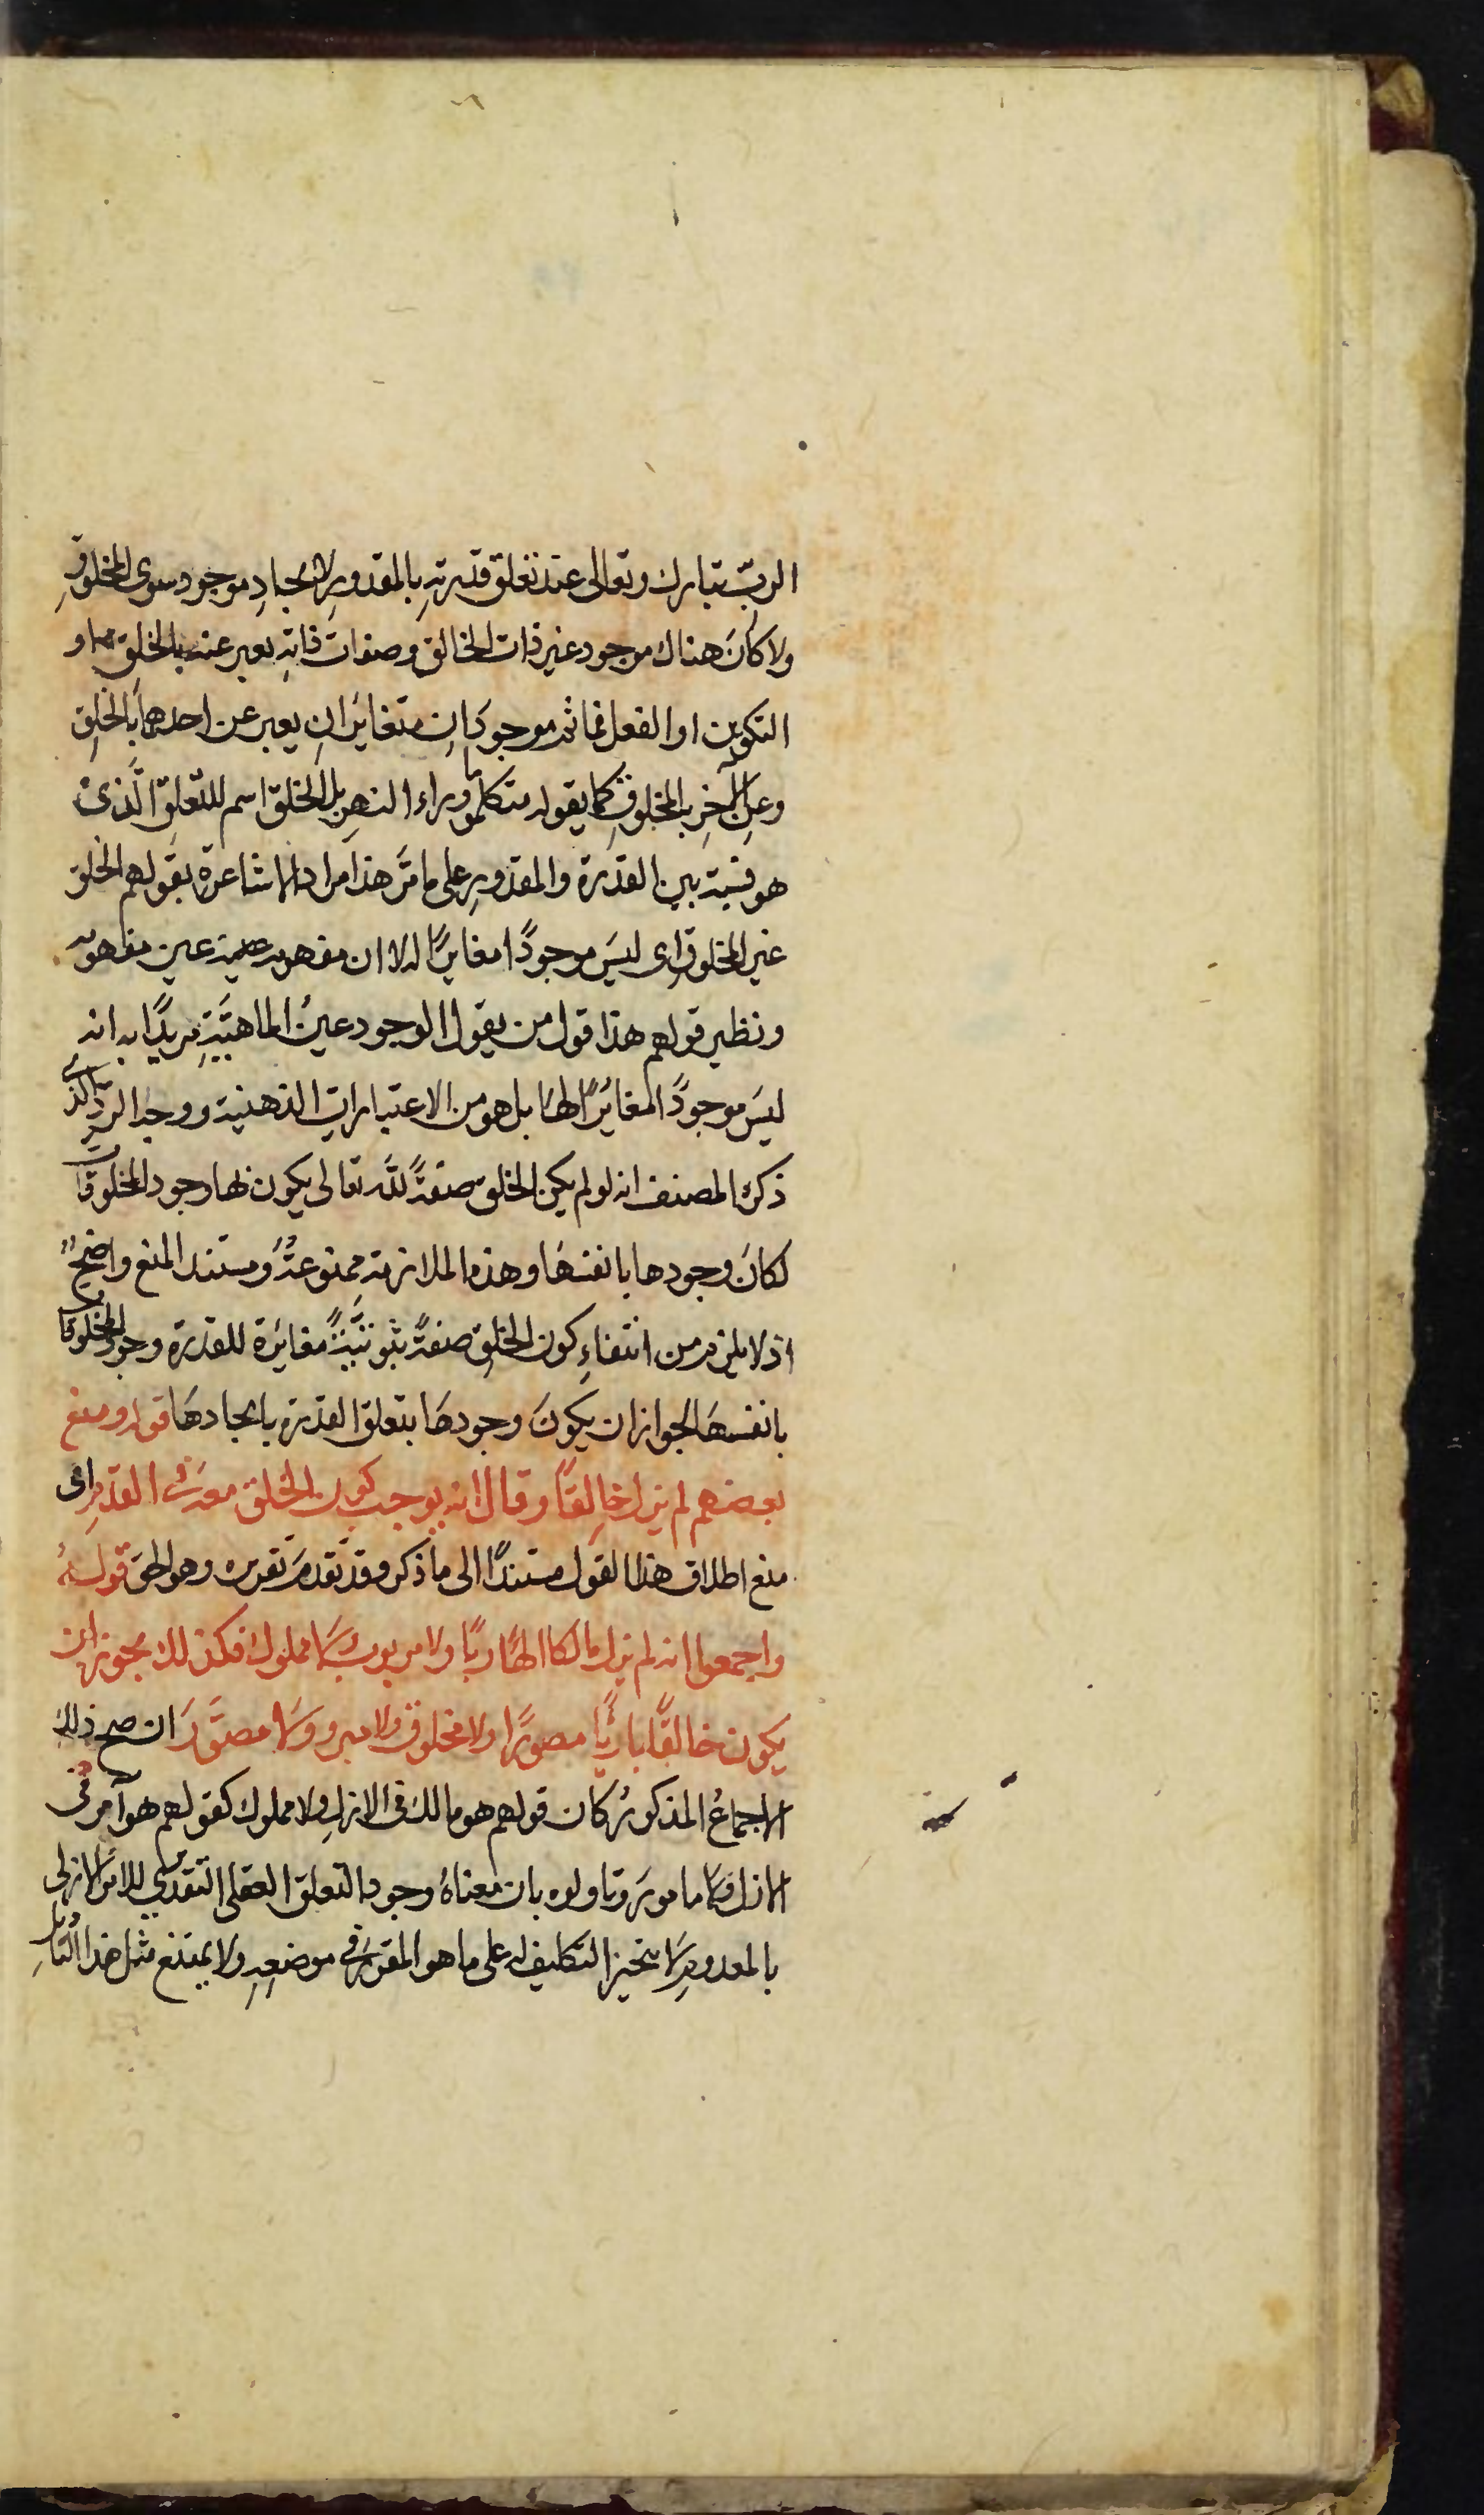 الربّ تبارك وتعالى عند تعلق قدرته بالمقدور لايجاد موجود سوى المخلوق
ولا كان هناك موجود غير ذات الخالق وصفات ذاته يعبر عنه بالخلق او
التكوين او الفعل فما ثم موجودان متغايران يعبر عن احدهما بالخلق
وعن الآخر بالمخلوق كما يقوله متكلموا ما وراء النهر بل الخلق اسم للتعلق الذى
هو نسبة بين القدرة والمقدور على ما مرّ هذا مراد الاشاعرة بقولهم الخلق
عين المخلوق اى ليس موجودًا مغايرًا له لا ان مفهومه عين مفهومه
ونظير قولهم هذا قول من يقول الوجود عين الماهيّة مريدًا به انه
ليس موجودًا مغايرًا لها بل هو من الاعتبارات الذهنية ووجه الرد الذى
ذكره المصنف انه لو لم يكن الخلق صفةً لله تعالى يكون بها وجود المخلوقات
لكان وجودها بانفسها وهذه الملازمة ممنوعة ومستند المنع واضح
اذ لا يلزم من انتفاء كون الخلق صفةً ثبوتيّةً مغايرة للقدرة وجود المخلوقات
بانفسها لجواز ان يكون وجودها بتعلق القدرة بايجادها قوله ومنع
بعضهم لم يزل خالقًا وقال انه يوجب كون الخلق معه فى القدم اى
منع اطلاق هذا القول مستندًا الى ما ذكر وقد تقدم تقريره وهو الحق قوله
واجمعوا انه لم يزل مالكا الهًا ربًا ولا مربوب ولا مملوك فكذلك يجوز ان
يكون خالقًا بارئًا مصورًا ولا مخلوق ولا مبروو ولا مصوّر ان صح ذلك
الاجماع المذكور كان قولهم هو مالك فى الازل ولا مملوك كقولهم هو آمر فى
الازل ولا مامور وتاولوه بان معناه وجود التعلق العقلى التقديرى للامر الازلى
بالمعدوم لا تنجيز التكليف له على ما هو المقرر فى موضعه ولا يمتنع مثل هذا التاويل